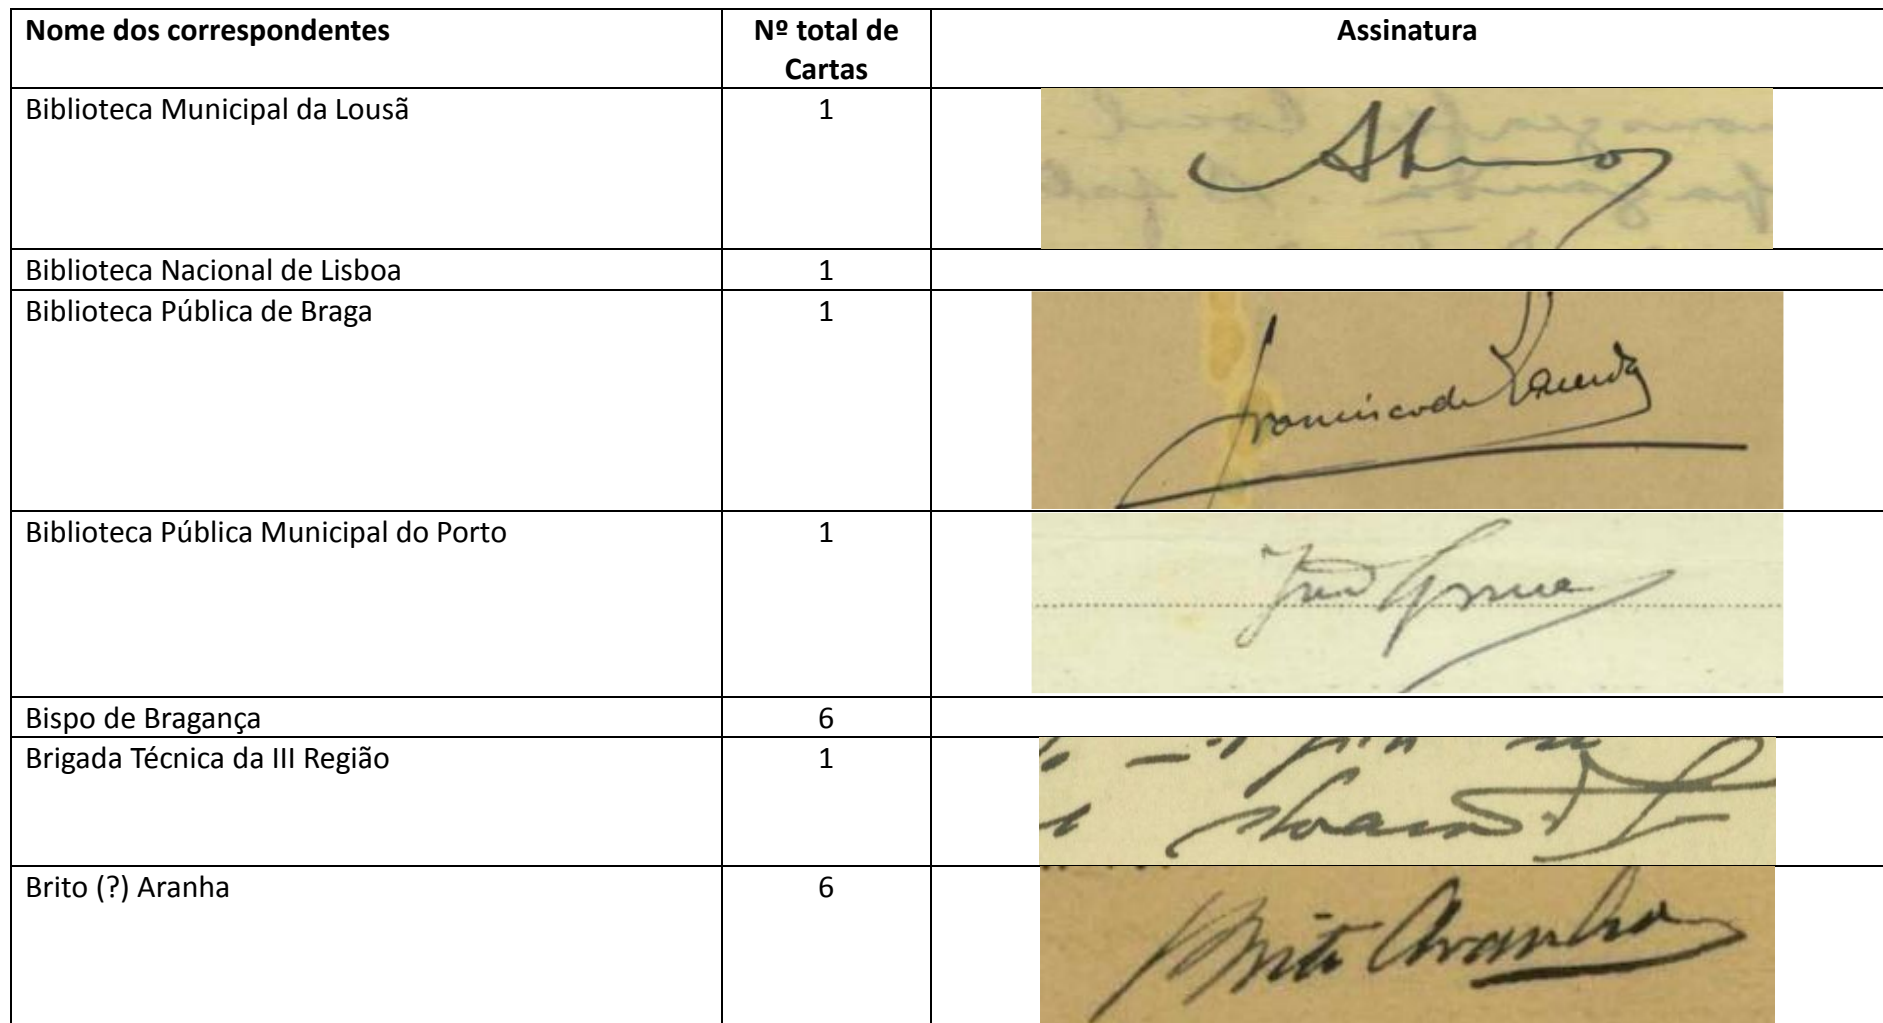 Nome dos correspondentes
Nº total de
Cartas
Assinatura
Biblioteca Municipal da Lousã
1
Biblioteca Nacional de Lisboa
1
Biblioteca Pública de Braga
1
Francisco de
Biblioteca Pública Municipal do Porto
1
Bispo de Bragança
6
Brigada Técnica da III Região
1
Brito (?) Aranha
6
Brito Aranha